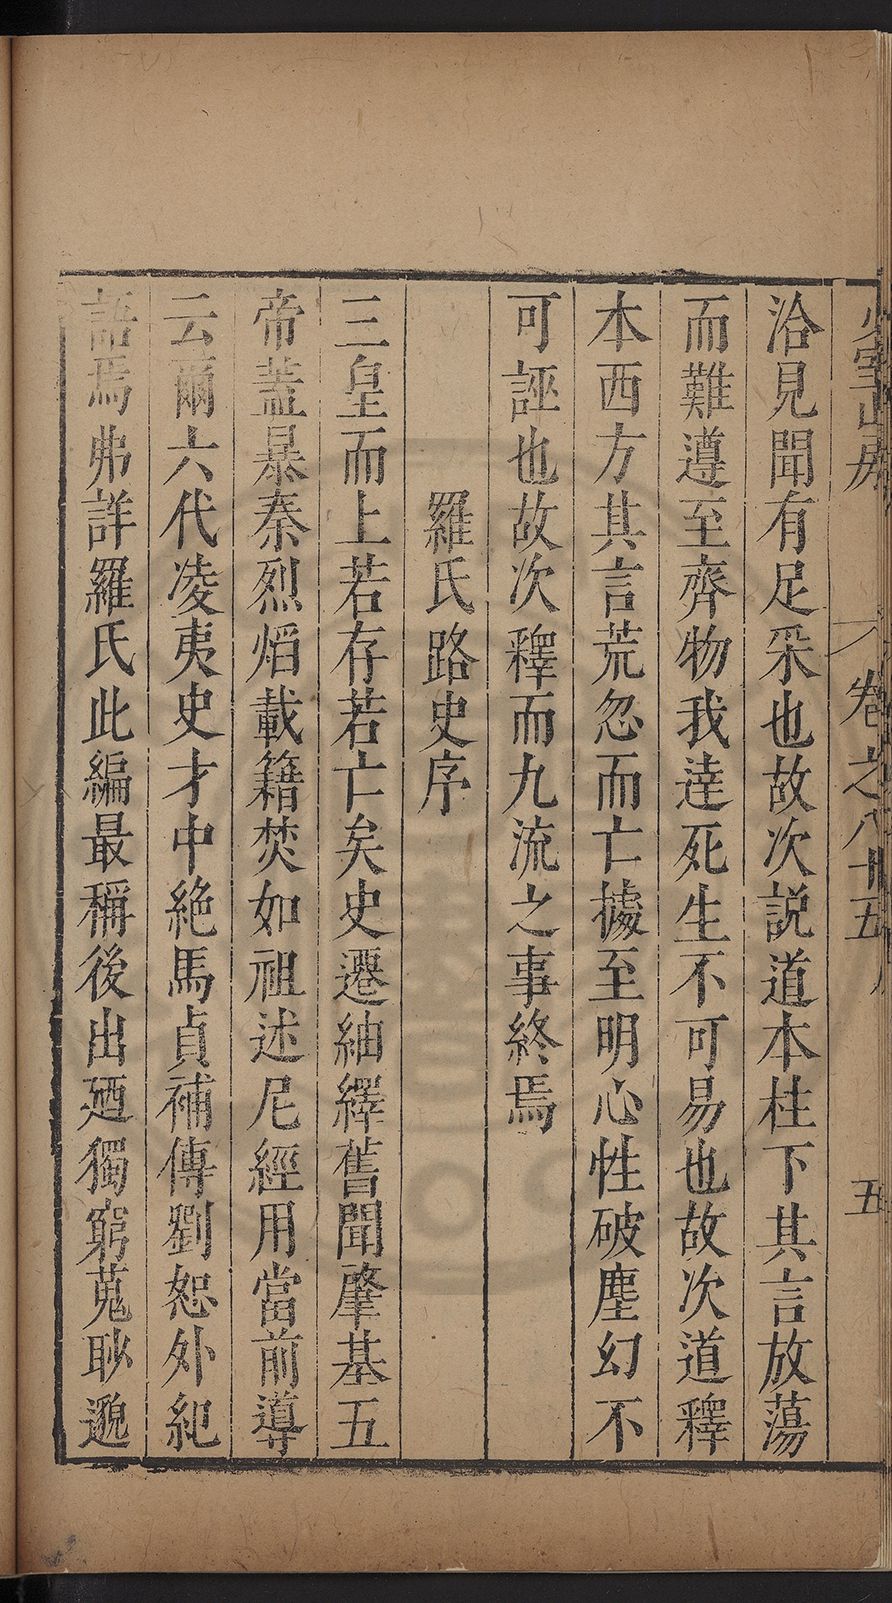 少室山房 卷之八十五 五
洽見聞有足采也故次説道本柱下其言放蕩
而難遵至齊物我達死生不可易也故次道釋
本西方其言荒忽而亡據至明心性破塵幻不
可誣也故次釋而九流之事終焉
羅氏路史序
三皇而上若存若亡矣史遷紬繹舊聞肇基五
帝蓋暴秦烈熖載籍焚如祖述尼經用當前導
云爾六代凌夷史才中絶馬貞補傳劉恕外紀
語焉弗詳羅氏此編最稱後出廼獨窮蒐眇邈